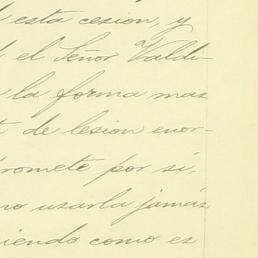 esta cesion, y
el Señor Valdi-
la forma mas
de lesion enor-
romete por sí,
no usarla jamás
iendo como es